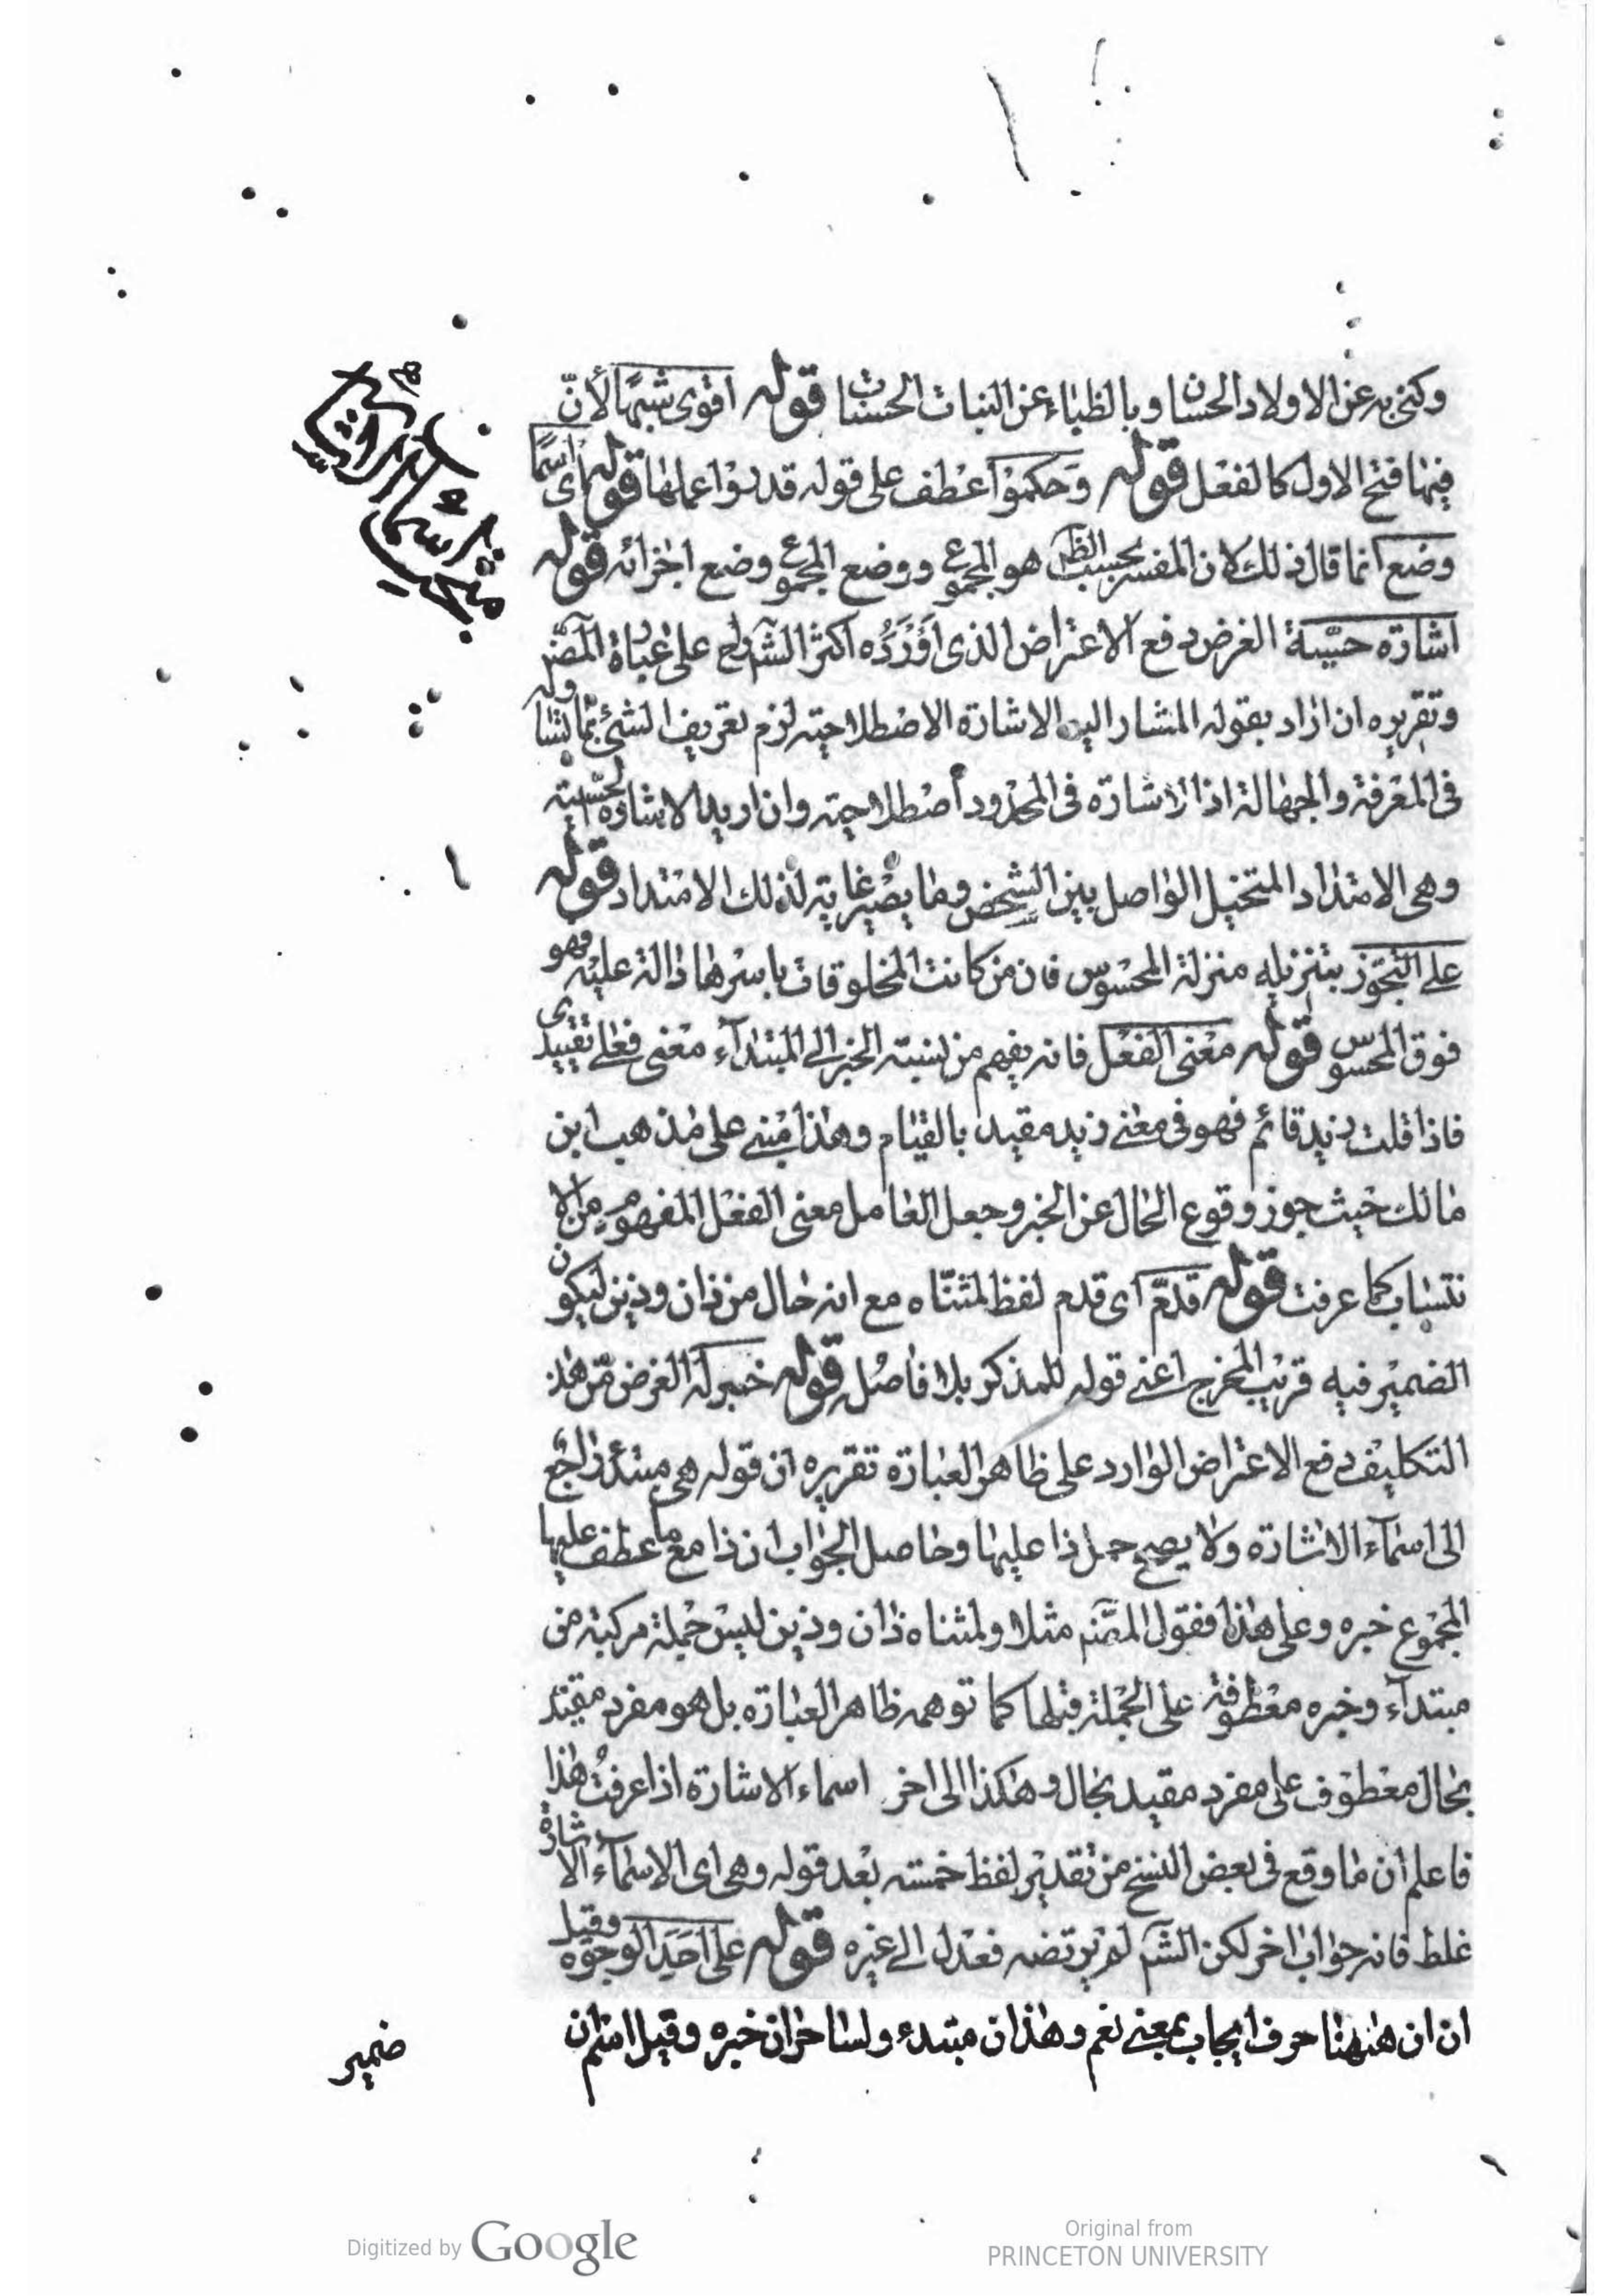 مبحث اسماء الاشارة
وكنى به عن الاولاد الحسان وبالظباء عن البنات الحسنات قوله اقوى شبها لأنّ
فيها فتح الاول كالفعل قوله وحكموا عطف على قوله قد بوا عملها قوله اى اسما
وضع انما قال ذلك لان المفسر بحسب الظ هو المجموع ووضع المجموع وضع اجزائه قوله
اشارة حسّية الغرض دفع الاعتراض الذى اوْرَدَه اكثر الشراح على عبارة المصنّ
وتقريره ان اراد بقوله المشار اليه الاشارة الاصطلاحية لزم تعريف الشئ بما يساويه
فى المعرفة والجهالة اذا الاشارة فى المحدود اصطلاحية وان اريد الاشارة الحسّية
وهى الامتداد المتخيل الواصل بين الشخص وما يصير غاية لذلك الامتداد قوله
على التجوّز بتنزيله منزلة المحسوس فان من كانت المخلوقات باسرها دالة عليه فهو
فوق المحسوس قوله معنى الفعل فانه يفهم من نسبة الخبر الى المبتداء معنى فعلى تقييدى
فاذا قلت زيد قائم فهو فى معنى زيد مقيد بالقيام وهذا مبنى على مذهب ابن
مالك حيث جوز وقوع الحال عن الخبر وجعل العامل معنى الفعل المفهوم من الا
نتساب كما عرفت قوله قدمّ اى قدم لفظ لمثنّاه مع انه حال من ذان وذين ليكون
الضمير فيه قريب المخرج اعنى قوله للمذكر بلا فاصل قوله خبر له الغرض من هذا
التكليف دفع الاعتراض الوارد على ظاهر العبارة تقريره ان قوله هى مبتدء راجع
الى اسمآء الاشارة ولا يصح حمل ذا عليها وحاصل الجواب ان ذا مع ما عطف عليها
المجموع خبره وعلى هذا فقول المصّنم مثلا ولمثناه ذان وذين ليس جملة مركبة من
مبتداء وخبره معطوفة على الجملة قبلها كما توهمه ظاهر العبارة بل هو مفرد مقيد
بحال معطوف على مفرد مقيد بحال وهكذا الى اخر اسماء الاشارة اذا عرفت هذا
فاعلم ان ما وقع فى بعض النسخ من تقدير لفظ خمسة بعد قوله وهى اى الاسمآء الاشارة
غلط فانه جواب اخر لكن الشّم لم يرتضه فعدل الى غيره قوله على احَدَ الوجوه وقيل
ان ان هيهنا حرف ايجاب بمعنى نعم وهذان مبتدء ولساحران خبره وقيل اسم ان
ضمير
Digitized by Google
Original from
PRINCETON UNIVERSITY